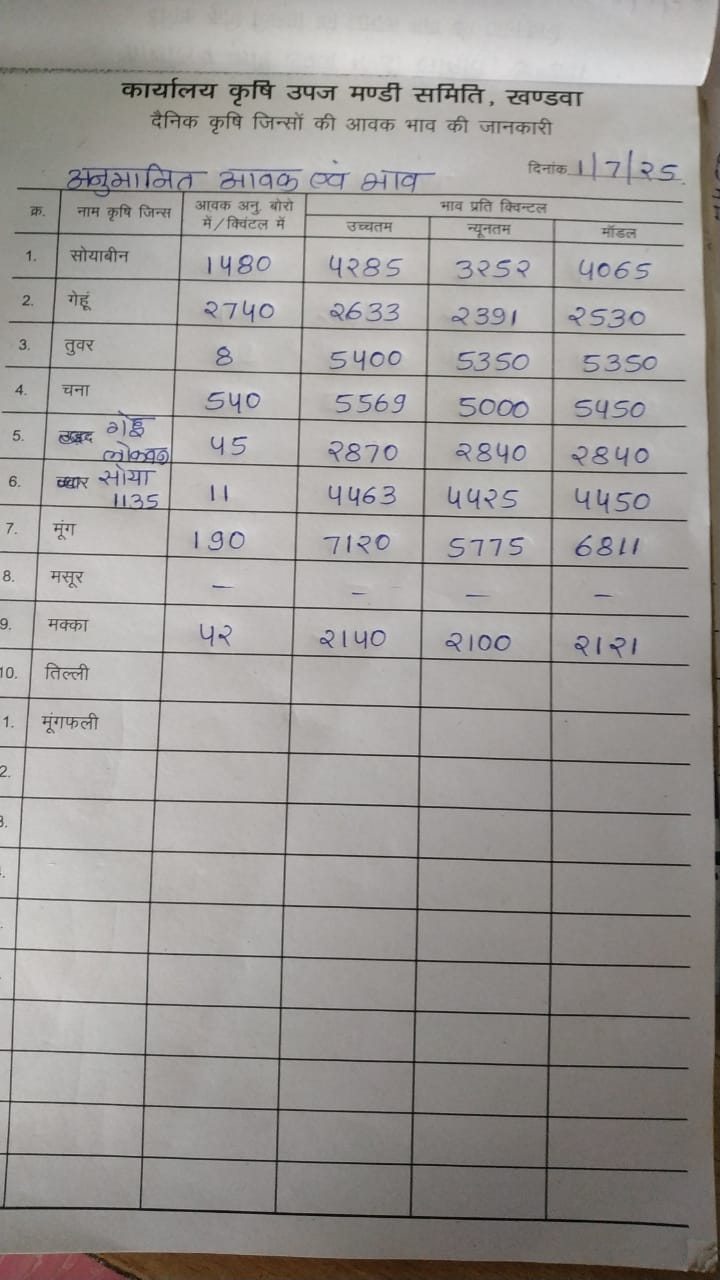 कार्यालय कृषि उपज मण्डी समिति, खण्डवा
दैनिक कृषि जिन्सों की आवक भाव की जानकारी
अनुमानित आवक एवं भाव दिनांक 1/7/२5.
क्र. नाम कृषि जिन्स आवक अनु. बोरो में/क्विंटल में भाव प्रति क्विन्टल
उच्चतम न्यूनतम मॉडल
1. सोयाबीन 1480 4२85 3२5२ 4065
2. गेहूं २740 २633 २391 २530
3. तुवर 8 5400 5350 5350
4. चना 540 5569 5000 5450
5. गेहूं लोकवन 45 २870 २840 २840
6. सोया 1135 11 4463 44२5 4450
7. मूंग 190 71२0 5775 6811
8. मसूर – – – –
9. मक्का 4२ २140 २100 २1२1
10. तिल्ली
1. मूंगफली
2.
3.